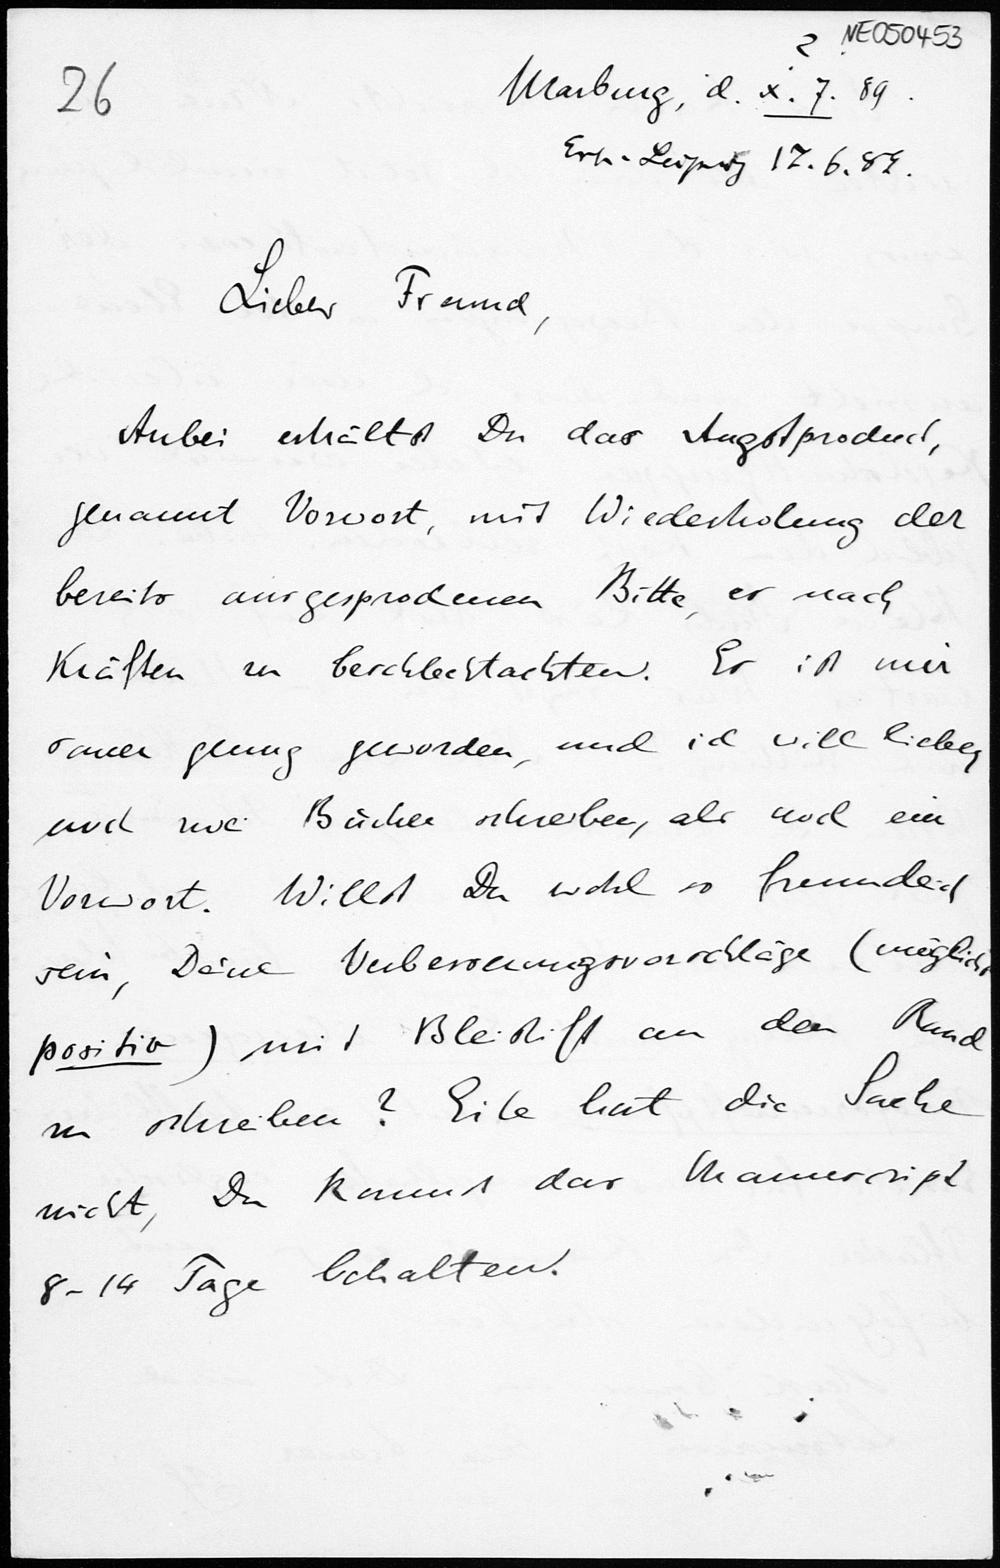 NE050453
26
?
Marburg, d. x. 7. 89.
Leipzig 17. 6. 89.
Lieber Freund,
Anbei erhältst Du das Angstproduct,
genannt Vorwort, mit Wiederholung der
bereits ausgesprochenen Bitte, es nach
Kräften zu beschlechtachten. Es ist mir
sauer genug geworden, und ich will lieber
noch zwei Bücher schreiben, als noch ein
Vorwort. Willst Du wohl so freundlich
sein, Deine Verbesserungsvorschläge (möglichst
positiv) mit Bleistift an den Rand
zu schreiben? Eile hat die Sache
nicht, Du kannst das Manuscript
8-14 Tage behalten.